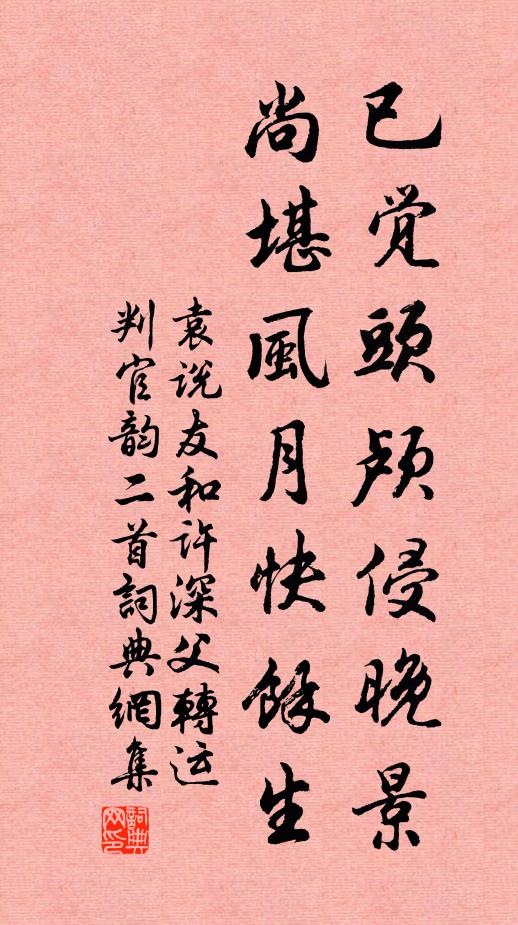 已觉頭颅侵晚景
尚堪風月快餘生
袁说友和许深父轉运
判官韵二首詞典網集
詞典
网印